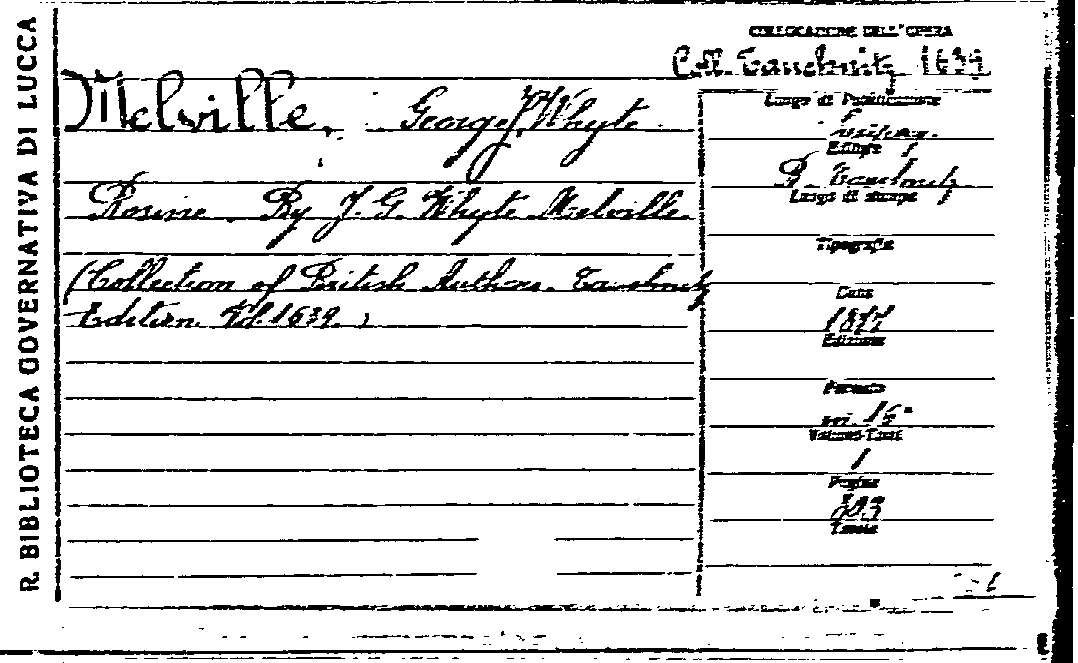 R. BIBLIOTECA GOVERNATIVA DI LUCCA
COLLOCAZIONE DELL'OPERA
Coll. Tauchnitz 1639
Melville, George J. Whyte
Rosine. By J. G. Whyte Melville.
(Collection of British Authors. Tauchnitz
Edition. Vol. 1639.)
Luogo di Pubblicazione
Leipzig.
Editore
B. Tauchnitz
Luogo di stampa
Tipografia
Data
1877
Edizione
Formato
in 16°
Volumi-Tomi
1
Pagine
303
Tavole